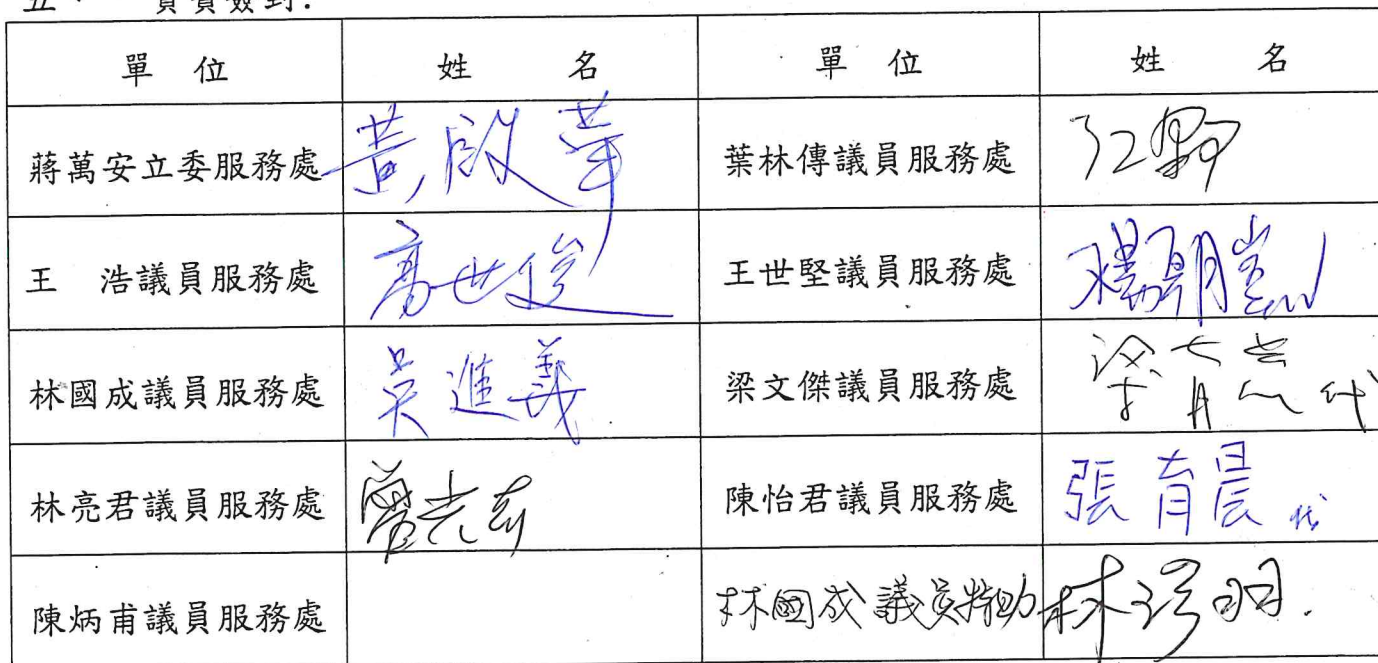 五、 貴賓簽到：
單 位 姓 名 單 位 姓 名
蔣萬安立委服務處 黃啟華 葉林傳議員服務處
王 浩議員服務處 高世俊 王世堅議員服務處 楊朝崴
林國成議員服務處 吳進義 梁文傑議員服務處 代
林亮君議員服務處 陳怡君議員服務處 張育晨 代
陳炳甫議員服務處 林國成議員特助 林